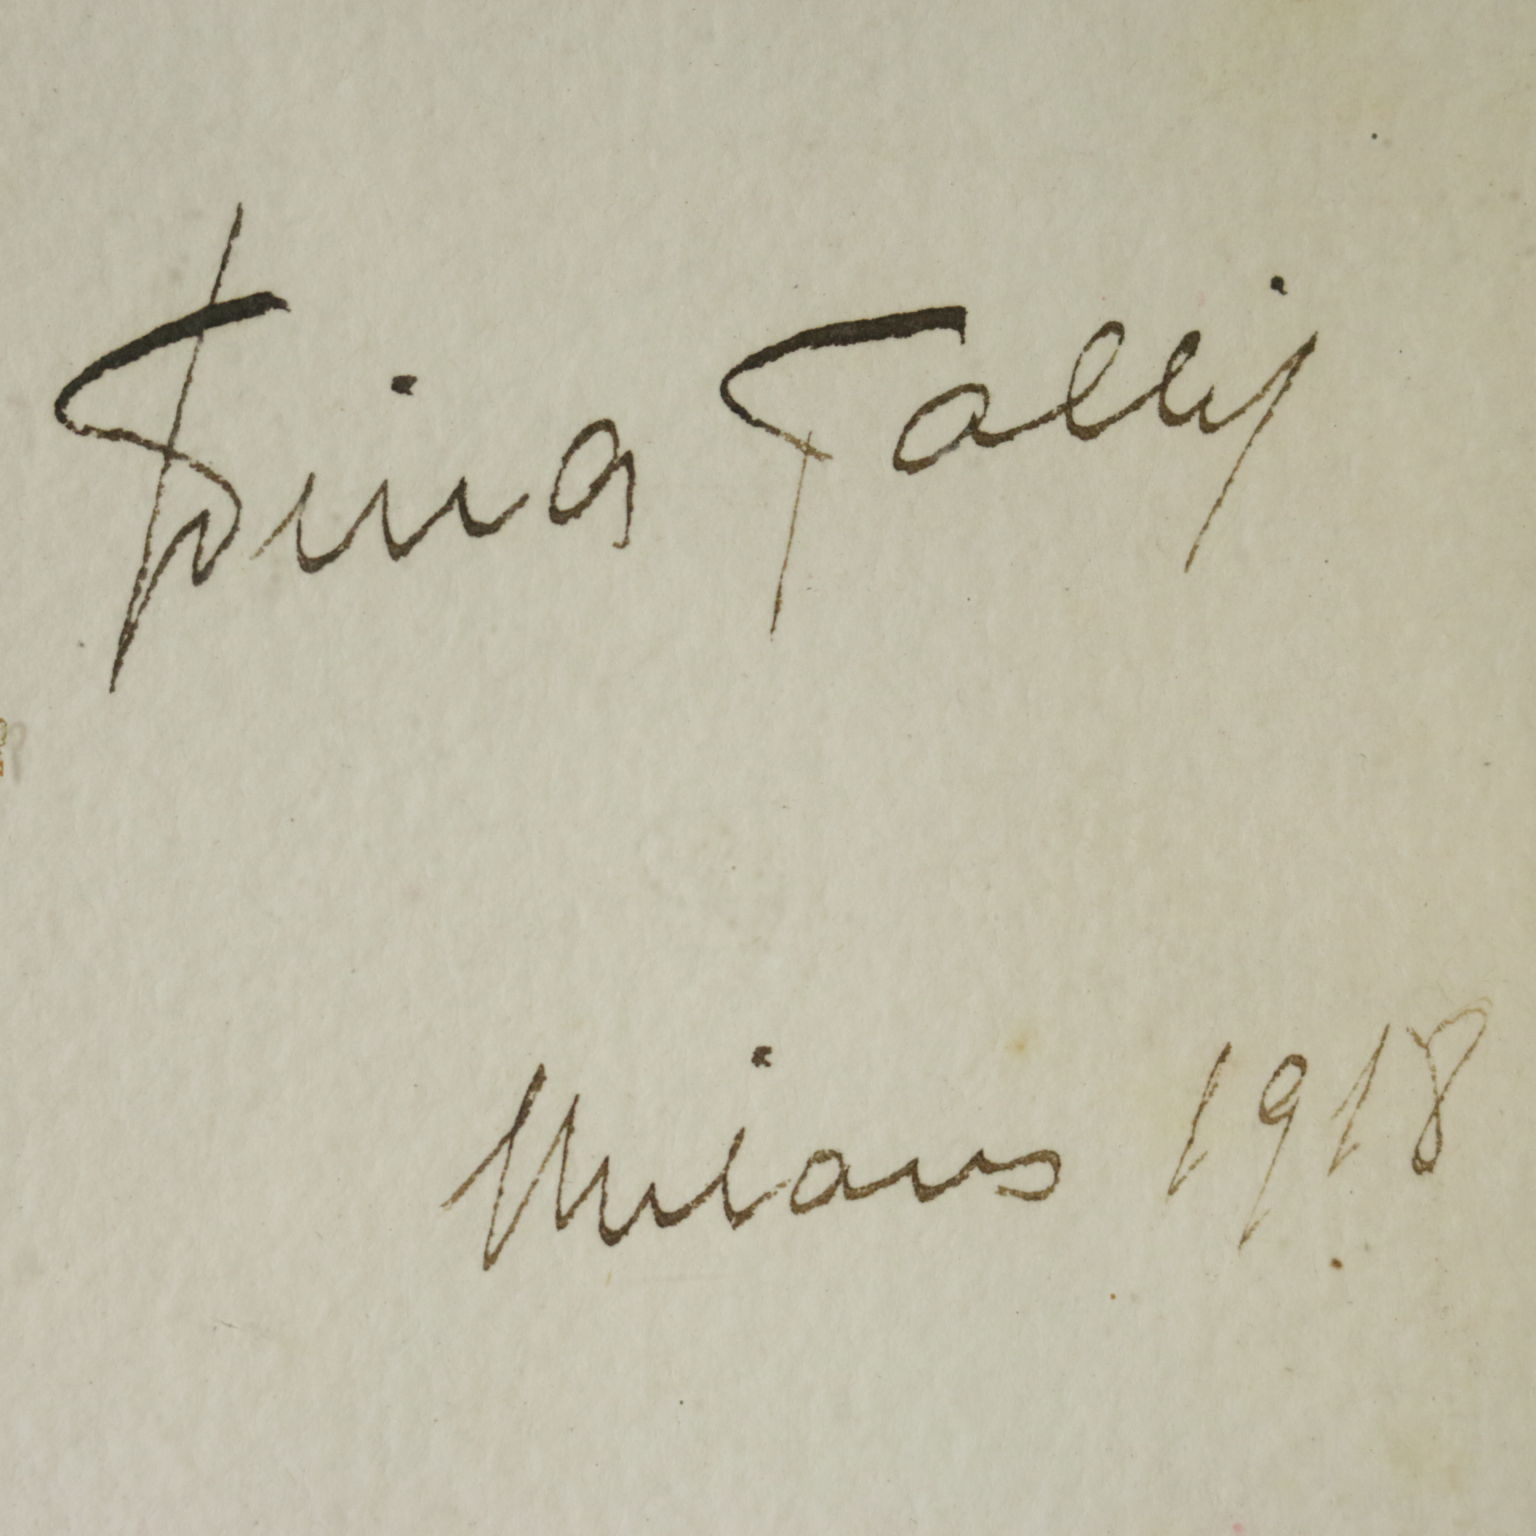 Tina Tallij
Milano 1918